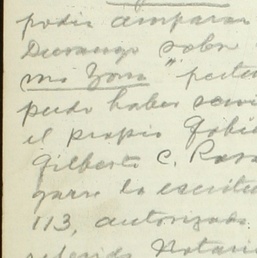 podia amparar
Durango sobre
mi Zona" perte
pudo haber servi
el propio Gobie
Gilberto C. Rosa
garre la escritu
113, autorizada
referido Notari